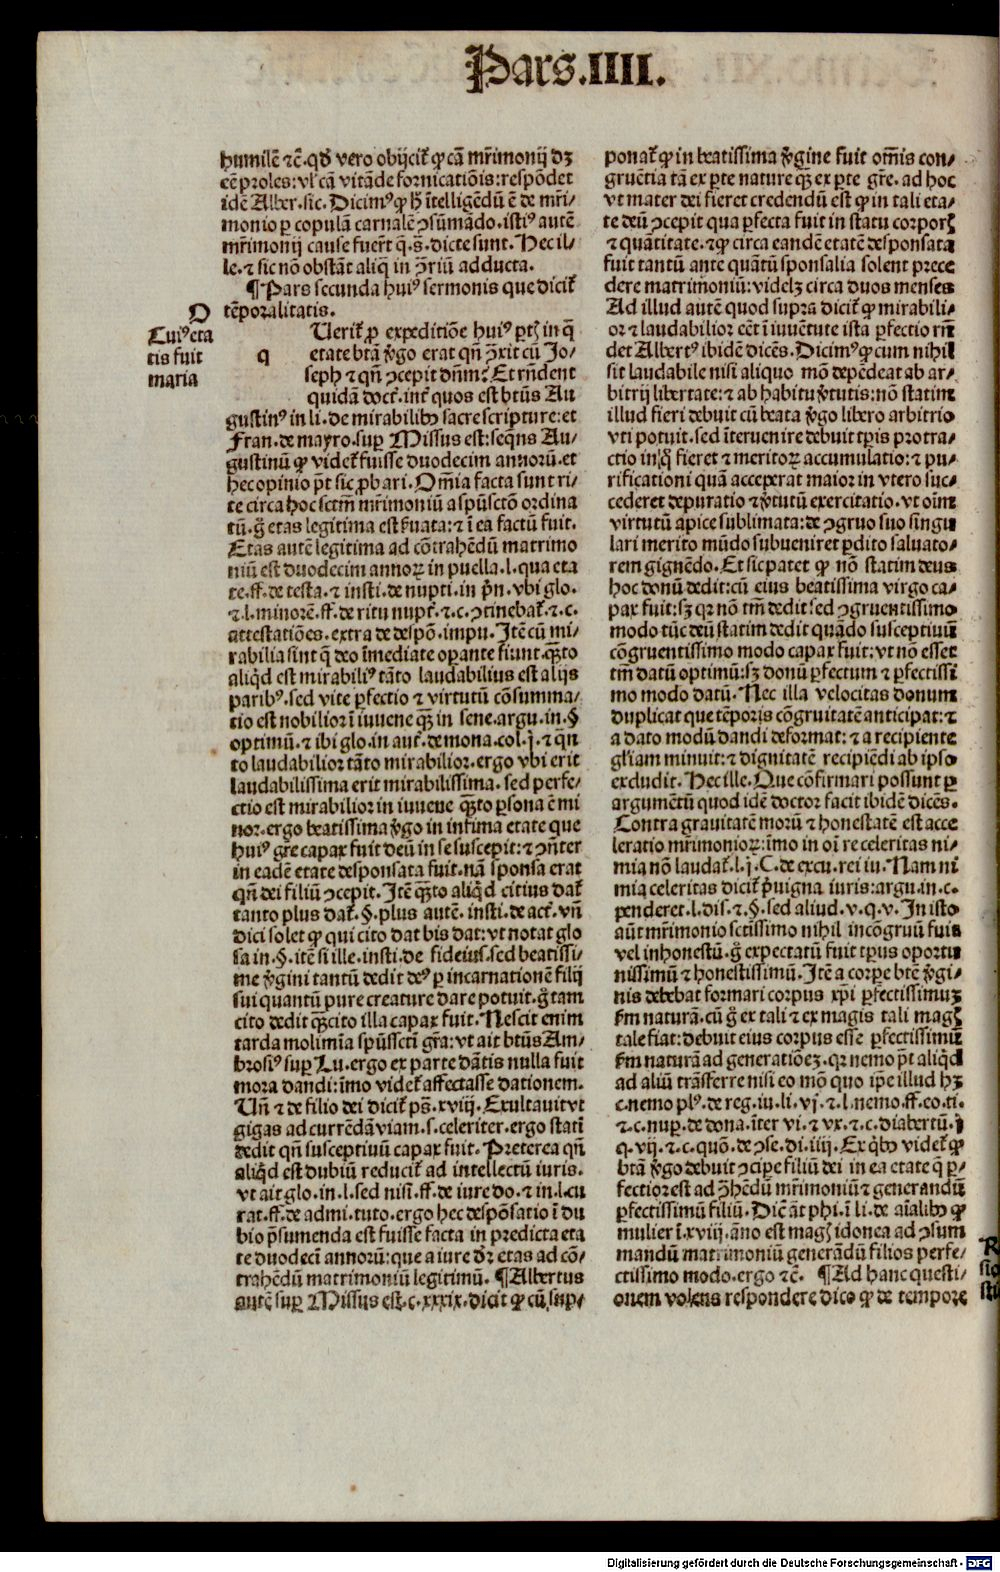 Pars.IIII.
humilē ⁊c̄. qđ vero obijcit̃ ꝙ cā mr̄imonij dꝫ
eē proles: vl̕ cā vitāde fornicatiōis: respōdet
idē Alber. sic. Dicimꝰ ꝙ ħ ītelligēdū ē de mr̄i-
monio ꝑ copulā carnalē ↄsūmādo. istiꝰ autē
mr̄imonij cause fuer̃t q̄. s̄. dicte sunt. Hec il-
le. ⁊ sic nō obstāt aliq̄ in ↄ̄riū adducta.
¶ Pars secunda huiꝰ sermonis que dicit̃
tēporalitatis.
O
Cuiꝰ eta
tis fuit
maria
q
Uerit̃ ꝓ expeditiōe huiꝰ ꝑt̄ in q̄
etate btā v̄go erat qn̄ ↄ̄xit cū Jo-
seph ⁊ qn̄ ↄcepit dn̄m? Et rn̄dent
quidā doct̃. int̃ quos est btūs Au
gustinꝰ in li. de mirabilibꝰ sacre scripture: et
Fran. de mayro. suꝑ Missus est: seq̄ns Au-
gustinū ꝙ videt̃ fuisse duodecim annorū. et
hec opinio p̄t sic ꝓbari. Om̄ia facta sunt ri-
te circa hoc sctm̄ mr̄imoniū a spūsctō ordina
tū. g̊ etas legitima est ẜuata: ⁊ ī ea factū fuit.
Etas autē legitima ad cōtrahēdū matrimo
niū est duodecim annoꝝ in puella. l. qua eta
te. ff. de testa. ⁊ insti. de nupti. in p̄n. vbi glo.
⁊ l. minorē. ff. de ritu nupt̃. ⁊ c. ↄtinebat̃. ⁊ c.
attestatiōes. extra de despō. impu. Itē cū mi-
rabilia sint q̄ deo īmediate oꝑante fiunt. q̄ꝫto
aliq̊d est mirabiliꝰ tāto laudabilius est alijs
paribꝰ. sed vite ꝑfectio ⁊ virtutū cōsumma-
tio est nobilior ī iuuene q̄ꝫ in sene. argu. in. §
optimū. ⁊ ibi glo. in aut̃. de mona. col. j. ⁊ q̄n
to laudabilior tāto mirabilior. ergo vbi erit
laudabilissima erit mirabilissima. sed perfe-
ctio est mirabilior in iuuene q̄ꝫto ꝑsona ē mi
nor. ergo beatissima v̄go in infima etate que
huiꝰ gr̄e capax fuit deū in se suscepit: ⁊ ↄ̄nter
in eadē etate desponsata fuit. nā sponsa erat
qn̄ dei filiū ↄcepit. Itē q̄ꝫto aliq̊d citius dat̃
tanto plus dat̃. §. plus autē. insti. de act̃. vn̄
dici solet ꝙ qui cito dat bis dat: vt notat glo
sa in. §. itē si ille. insti. de fideius. sed beatissi-
me v̄gini tantū dedit deꝰ ꝑ incarnationē filij
sui quantū pure creature dare potuit. g̊ tam
cito dedit q̄ꝫcito illa capax fuit. Nescit enim
tarda molimīa spūsscti gr̄a: vt ait btūs Am-
brosiꝰ suꝑ Lu. ergo ex parte dātis nulla fuit
mora dandi: īmo videt̃ affectasse dationem.
Un̄ ⁊ de filio dei dicit̃ ps̄. xviij. Exultauit vt
gigas ad currēdā viam. s. celeriter. ergo statī
dedit qn̄ susceptiuū capax fuit. Preterea qn̄
aliq̊d est dubiū reducit̃ ad intellectū iuris.
vt ait glo. in. l. sed nisi. ff. de iure do. ⁊ in. l. cu
rat. ff. de admi. tuto. ergo hec despōsatio ī du
bio p̄sumenda est fuisse facta in predicta eta
te duodecī annorū: que a iure dr̄ etas ad cō-
trahēdū matrimoniū legitimū. ¶ Albertus
autē suꝑ Missus est. c. xxxix. dicit ꝙ cū sup-
ponat̃ ꝙ in beatissima v̄gine fuit om̄is con-
gruētia tā ex ꝑte nature q̄ꝫ ex ꝑte gr̄e. ad hoc
vt mater dei fieret credendū est ꝙ in tali eta-
te deū ↄcepit qua ꝑfecta fuit in statu corporꝭ
⁊ quātitate. ⁊ ꝙ circa eandē etatē desponsata
fuit tantū ante quātū sponsalia solent prece
dere matrimoniū: videlꝫ circa duos menses
Ad illud autē quod supra dicit̃ ꝙ mirabili-
or ⁊ laudabilior eēt ī iuuētute ista ꝑfectio rn̄
det Albertꝰ ibidē dicēs. Dicimꝰ ꝙ cum nihil
sit laudabile nisi aliquo mō depēdeat ab ar-
bitrij libertate: ⁊ ab habitu v̄tutis: nō statim
illud fieri debuit cū beata v̄go libero arbitrio
vti potuit. sed īteruenire debuit tꝑis protra-
ctio in q̊ fieret ⁊ meritoꝝ accumulatio: ⁊ pu-
rificationi quā acceperat maior in vtero suc-
cederet depuratio ⁊ v̄tutū exercitatio. vt oīm
virtutū apice sublimata: de ↄgruo suo singu
lari merito mūdo subueniret ꝑdito saluato-
rem gignēdo. Et sic patet ꝙ nō statim deus
hoc donū dedit: cū eius beatissima virgo ca-
pax fuit: sꝫ qꝛ nō tm̄ dedit sed ↄgruentissimo
modo tūc deū statim dedit quādo susceptiuū
cōgruentissimo modo capax fuit: vt nō esset
tm̄ datū optimū: sꝫ donū ꝑfectum ⁊ ꝑfectissi
mo modo datū. Nec illa velocitas donum
duplicat que tēporis cōgruitatē anticipat: ⁊
a dato modū dandi deformat: ⁊ a recipiente
gl̄iam minuit: ⁊ dignitatē recipiēdi ab ipso
excludit. Hec ille. Que cōfirmari possunt ꝑ
argumētū quod idē doctor facit ibidē dicēs.
Contra grauitatē morū ⁊ honestatē est acce
leratio mr̄imonioꝝ: īmo in oī re celeritas ni-
mia nō laudat̃. l. j. C. de excu. rei iu. Nam ni
mia celeritas dicit̃ p̄uigna iuris: argu. in. c.
ꝑenderet. l. dis. ⁊. §. sed aliud. v. q. v. In isto
aūt mr̄imonio sctissimo nihil incōgruū fuit
vel inhonestū. g̊ expectatū fuit tꝑus oportu
nissimū ⁊ honestissimū. Itē a corꝑe btē v̄gi-
nis debebat formari corpus xp̄i ꝑfectissimuꝫ
ẜm naturā. cū g̊ ex tali ⁊ ex magis tali magꝭ
tale fiat: debuit eius corpus esse ꝑfectissimū
ẜm naturā ad generatiōeꝫ. qꝛ nemo p̄t aliq̊d
ad aliū trāsferre nisi eo mō quo ip̄e illud hꝫ
c. nemo plꝰ. de reg. iu. li. vj. ⁊. l. nemo. ff. eo. ti.
⁊. c. nuꝑ. de dona. īter vi. ⁊ vx. ⁊. c. diabertū. j
q. vij. ⁊. c. quō. de ↄse. di. iiij. Ex q̊bꝰ videt̃ ꝙ
btā v̄go debuit ↄciꝑe filiū dei in ea etate q̄ ꝑ-
fectior est ad ↄ̄hēdū mr̄imoniū ⁊ generandū
ꝑfectissimū filiū. Diē āt phi. ī li. de aīalibꝰ ꝙ
mulier ī. xviij. āno est magꝭ idonea ad ↄsum
mandū matrimoniū generādū filios perfe-
ctissimo modo. ergo ⁊c̄. ¶ Ad hanc questi-
onem volens respondere dico ꝙ de tempore
Digitalisierung gefördert durch die Deutsche Forschungsgemeinschaft - DFG